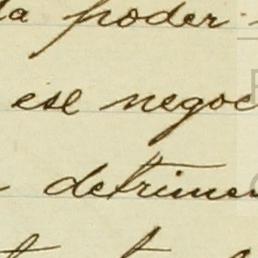 la poder
ese negoc
detrimen